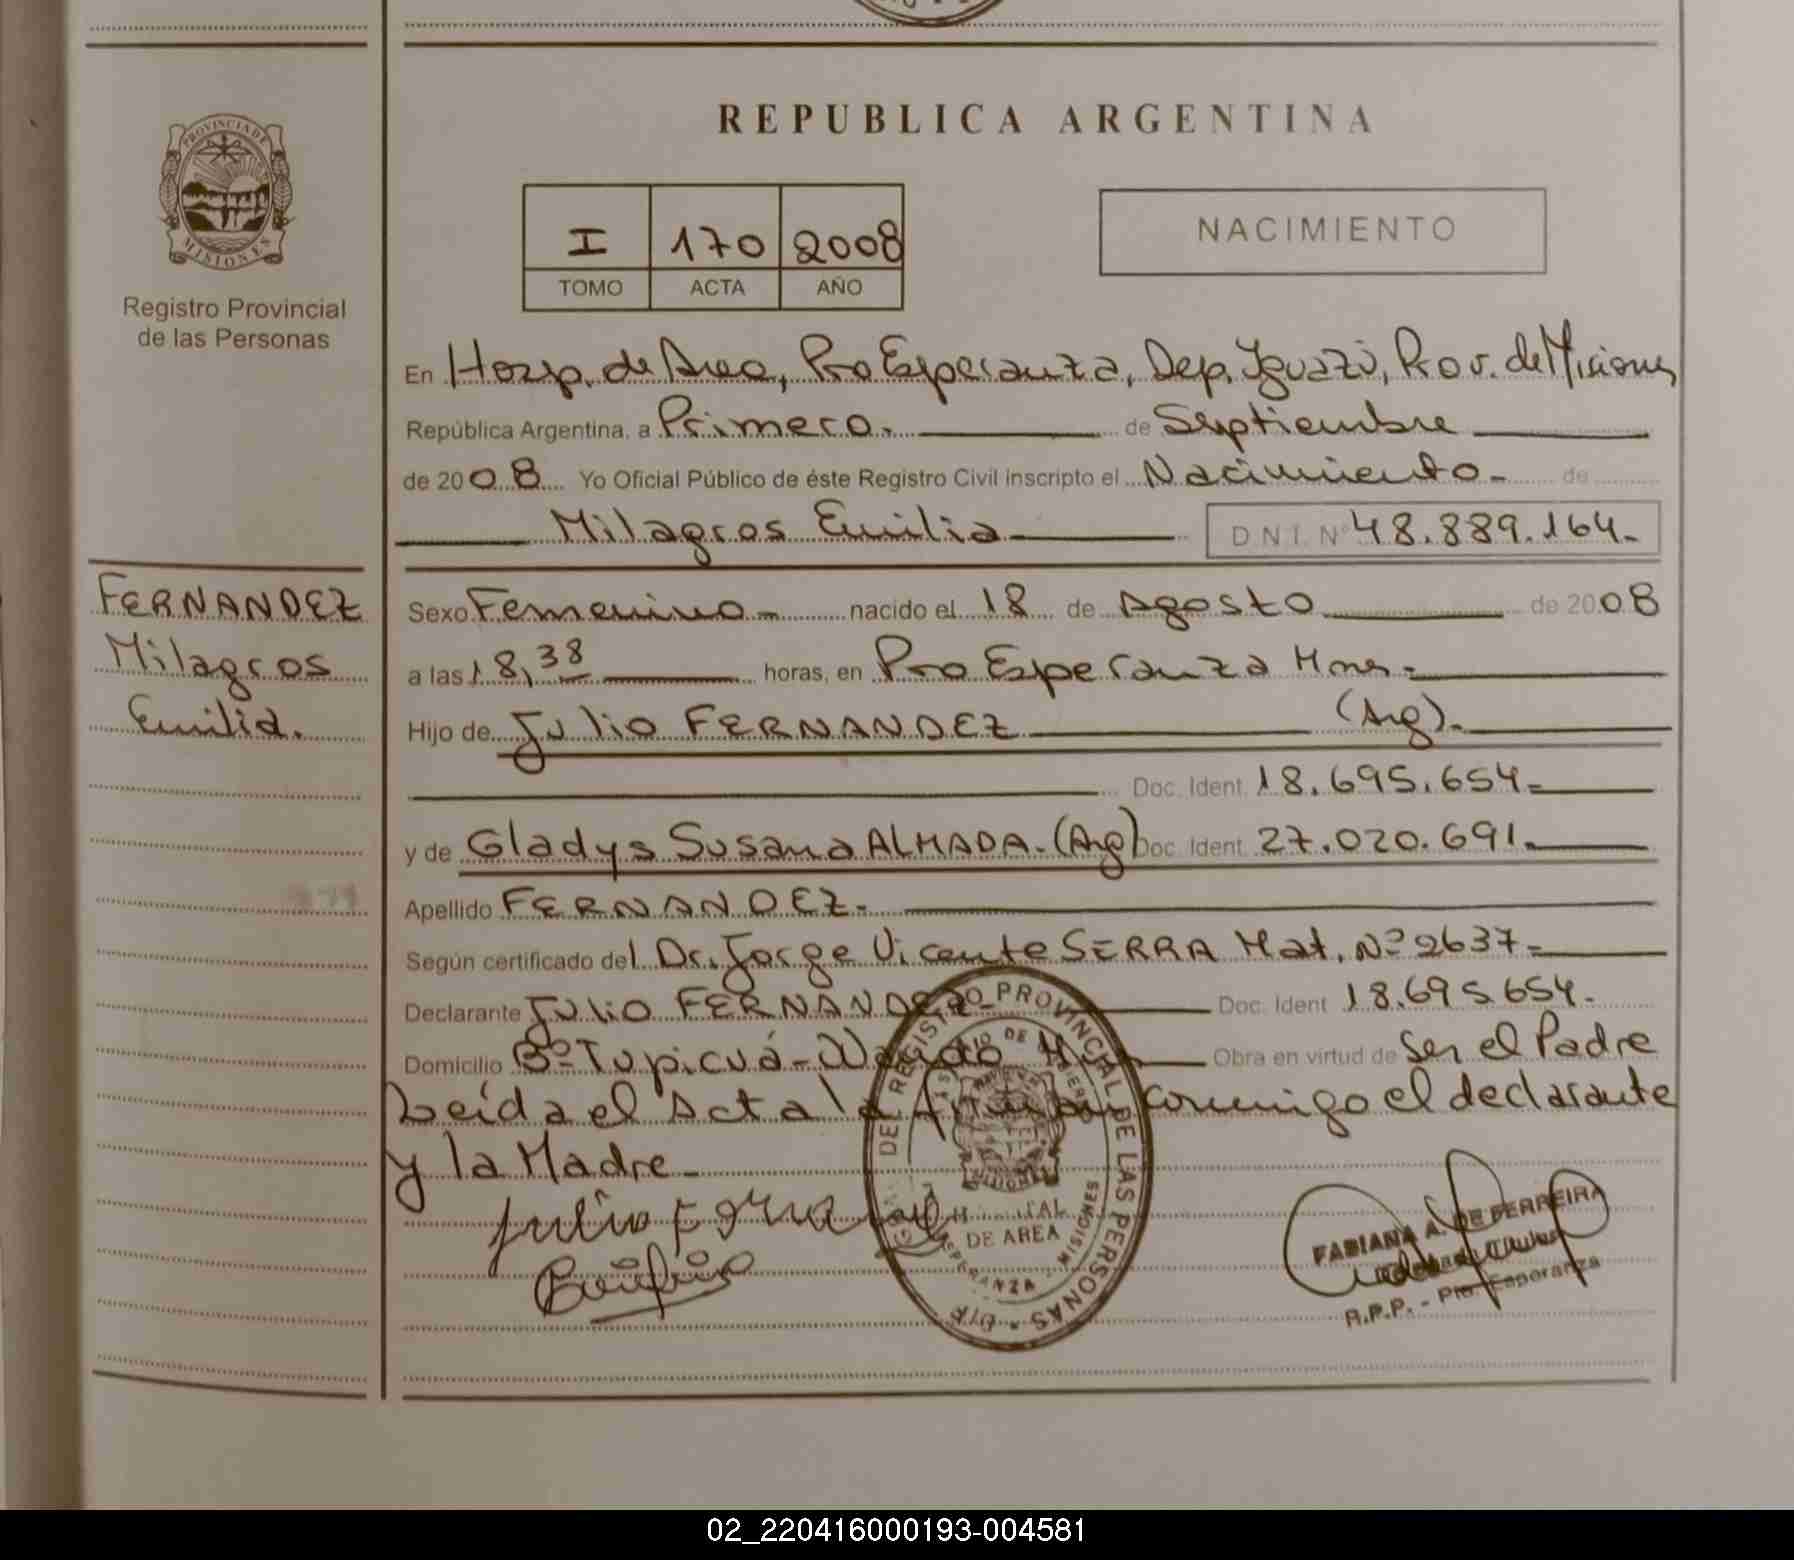 REPUBLICA ARGENTINA
PROVINCIA DE
MISIONES
Registro Provincial
de las Personas
I 170 2008
TOMO ACTA AÑO
NACIMIENTO
En Hosp. de Area, Pto Esperanza, Dep. Iguazú, Prov. de Misiones
República Argentina, a Primero.- de Septiembre
de 2008 Yo Oficial Público de éste Registro Civil inscripto el Nacimiento- de
Milagros Emilia D N I. Nº 48.889.164.-
FERNANDEZ
Milagros
Emilia.
Sexo Femenino- nacido el 18 de Agosto de 2008
a las 18,38 horas, en Pto Esperanza Mnes.-
Hijo de Julio FERNANDEZ (Arg).-
Doc. Ident. 18.695.654-
y de Gladys Susana ALMADA.(Arg) Doc. Ident. 27.020.691.-
Apellido FERNANDEZ.-
Según certificado del Dr. Jorge Vicente SERRA Mat. Nº 2637-
Declarante Julio FERNANDEZ- Doc. Ident. 18.695.654.-
Domicilio Bº Tupicuá- Obra en virtud de ser el Padre
Leída el Acta la firman conmigo el declarante
y la Madre-
REGISTRO PROVINCIAL DE LAS PERSONAS
DE AREA
MISIONES
FABIANA A. DE FERREIRA
R.P.P. - Pto. Esperanza
02_220416000193-004581